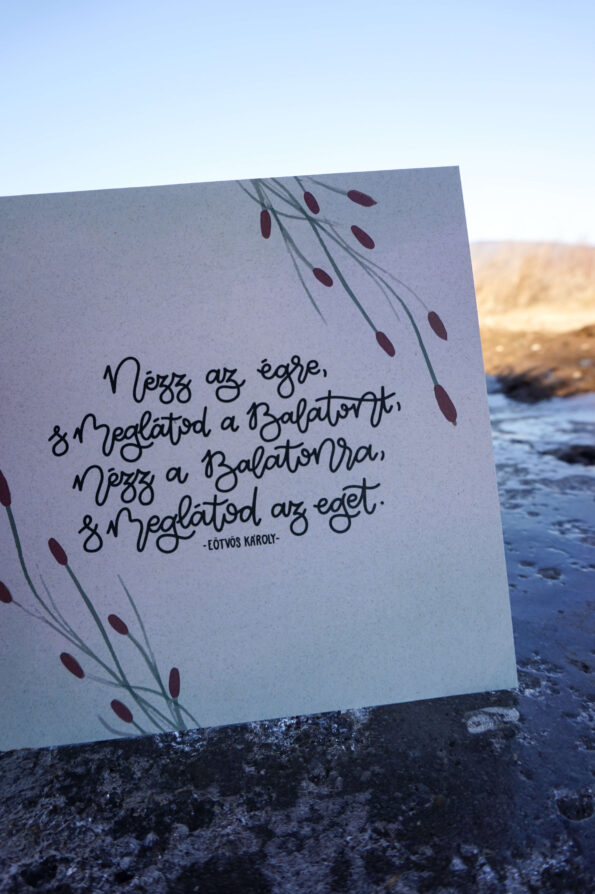 Nézz az égre,
s Meglátod a Balatont,
Nézz a Balatonra,
s Meglátod az eget.
-EÖTVÖS KÁROLY-